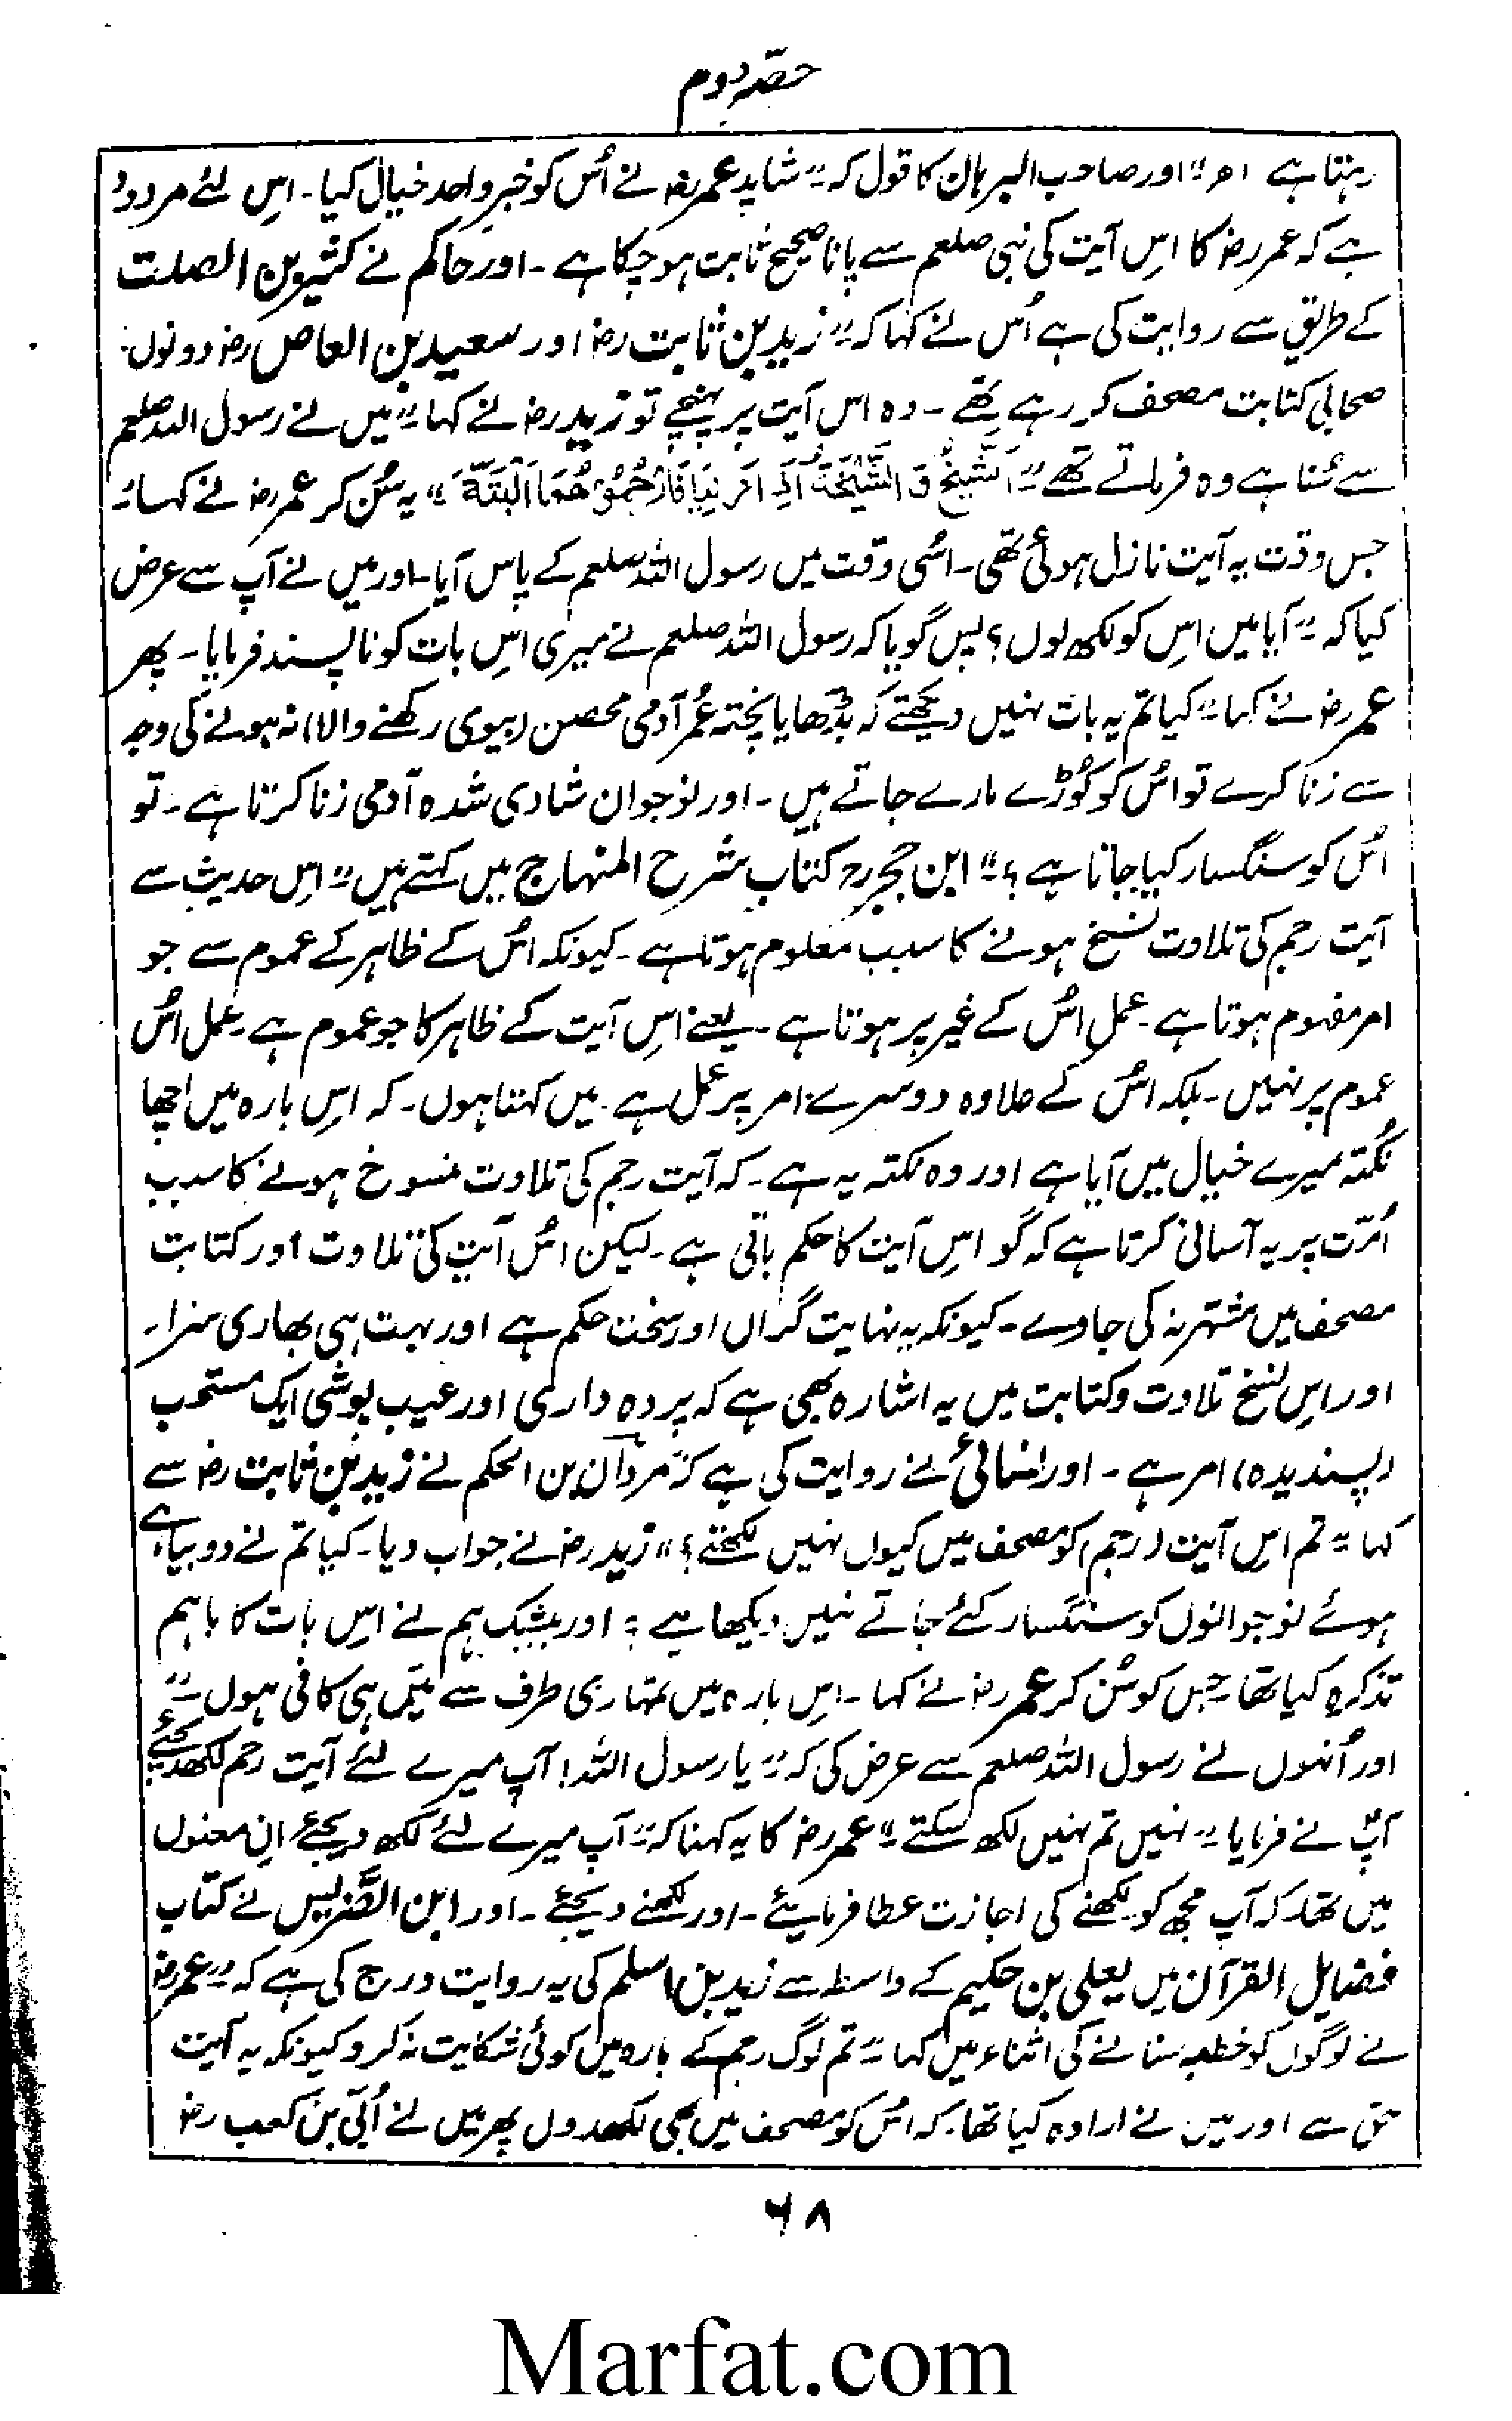 حصہ دوم
رہتا ہے ۔ اھ" اور صاحب البرہان کا قول کہ " شاید عمر رضہ نے اُس کو خبرِ واحد خیال کیا۔ اس لئے مردود
ہے کہ عمر رضہ کا اسِ آیت کی نبی صلعم سے پانا صحیح ثابت ہو چکا ہے ۔ اور حاکم نے کثیر بن الصلت
کے طریق سے روایت کی ہے اُس نے کہا کہ " زید بن ثابت رضہ اور سعید بن العاص رضہ دونوں
صحابی کتابت مصحف کر رہے تھے ۔ وہ اس آیت پر پہنچے تو زید رضہ نے کہا " میں نے رسول اللہ صلعم
سے سُنا ہے وہ فرماتے تھے " اَلشَّیْخُ وَ الشَّیْخَۃُ اِذَا زَنَیَا فَارْجُمُوْ ھُمَا اَلْبَتَّۃَ " یہ سُن کر عمر رضہ نے کہا "
جس وقت یہ آیت نازل ہوئی تھی ۔ اسُی وقت میں رسول اللہ صلعم کے پاس آیا ۔ اور میں نے آپ سے عرض
کیا کہ " آیا میں اسِ کو لکھ لوں ؟ پس گویا کہ رسول اللہ صلعم نے میری اسِ بات کو ناپسند فرمایا ۔ پھر
عمر رضہ نے کہا " کیا تم یہ بات نہیں دیکھتے کہ بڈھا یا پختہ عُمر آدمی محصن (بیوی رکھنے والا) نہ ہونے کی وجہ
سے زنا کرے تو اسُ کو کوُڑے مارے جاتے ہیں ۔ اور نوجوان شادی شدہ آدمی زنا کرتا ہے ۔ تو
اسُ کو سنگسار کیا جاتا ہے ؟" ابن حجر رح کتاب شرح المنہاج میں کہتے ہیں " اسِ حدیث سے
آیت رجم کی تلاوت نسخ ہونے کا سبب معلوم ہوتا ہے ۔ کیونکہ اسُ کے ظاہر کے عموم سے جو
امر مفہوم ہوتا ہے ۔ عمل اسُ کے غیر پر ہوتا ہے ۔ یعنے اسِ آیت کے ظاہر کا جو عموم ہے ۔ عمل اسُ
عموم پر نہیں ۔ بلکہ اسُ کے علاوہ دوسرے امر پر عمل ہے ۔ میں کہتا ہوں ۔ کہ اسِ بارہ میں اچھا
نُکتہ میرے خیال میں آیا ہے اور وہ نکتہ یہ ہے ۔ کہ آیت رجم کی تلاوت منسوخ ہونے کا سبب
اُمّت پر یہ آسانی کرتا ہے کہ گو اسِ آیت کا حکم باقی ہے ۔ لیکن اسُ آیت کی تلاوت اور کتابت
مصحف میں مشتہر نہ کی جاوے ۔ کیونکہ یہ نہایت گراں اور سخت حکم ہے اور بہت ہی بھاری سزا ۔
اور اسِ نسخ تلاوت و کتابت میں یہ اشارہ بھی ہے کہ پردہ داری اور عیب پوشی ایک مستحب
(پسندیدہ) امر ہے ۔ اور نسائی نے روایت کی ہے کہ مروان بن الحکم نے زید بن ثابت رضہ سے
کہا " تم اسِ آیت (رجم) کو مصحف میں کیوں نہیں لکھتے ؟" زید رضہ نے جواب دیا ۔ کیا تم نے دو بیاہے
ہوئے نوجوانوں کو سنگسار کئے جاتے نہیں دیکھا ہے ؟ اور بیشک ہم نے اسِ بات کا باہم
تذکرہ کیا تھا ۔ جس کو سُن کر عمر رضہ نے کہا ۔ اسِ بارہ میں تمہاری طرف سے میَں ہی کافی ہوں ۔"
اور اُنہوں نے رسول اللہ صلعم سے عرض کی کہ " یا رسول اللہ ! آپ میرے لئے آیت رجم لکھدیجئے
آپؐ نے فرمایا " نہیں تم نہیں لکھ سکتے " عمر رضہ کا یہ کہنا کہ " آپ میرے لئے لکھ دیجئے " انِ معنوں
میں تھا ۔ کہ آپ مجھ کو لکھنے کی اجازت عطا فرمایئے ۔ اور لکھنے دیجئے ۔ اور ابن الضّریس نے کتاب
فضایل القرآن میں یعلی بن حکیم کے واسطہ سے زید بن اسلم کی یہ روایت درج کی ہے کہ " عمر رضہ
نے لوگوں کو خطبہ سنانے کی اثناء میں کہا " تم لوگ رجم کے بارہ میں کوئی شکایت نہ کرو کیونکہ یہ آیت
حق ہے اور میں نے ارادہ کیا تھا ۔ کہ اسُ کو مصحف میں بھی لکھدوں پھر میں نے اُبّی بن کعب رضہ
۶۸
Marfat.com